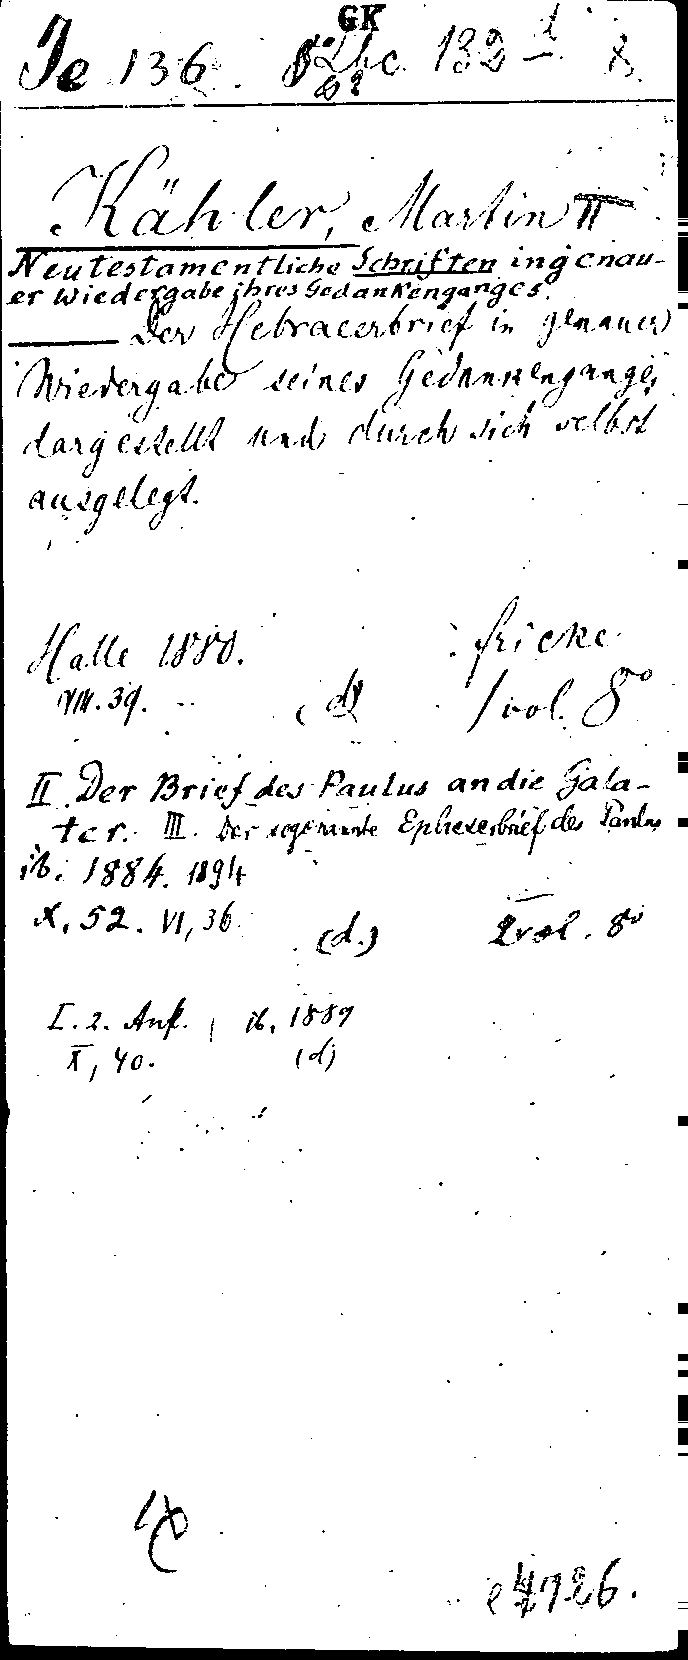 GK
Je 136. 132 d
Kähler, Martin II
Neutestamentliche Schriften in genau-
er Wiedergabe ihres Gedankenganges.
— Der Hebraeerbrief in genauer
Wiedergabe seines Gedankenganges
dargestellt und durch sich selbst
ausgelegt.
Halle 1880. Fricke
VIII. 39. (d) 1 vol. 8°
II. Der Brief des Paulus an die Gala-
ter. III. Der sogenannte Epheserbrief des Paulus
ib. 1884. 1894
X, 52. VI, 36. (d.) 2 vol. 8°
I. 2. Aufl. ib. 1889
X, 40. (d)